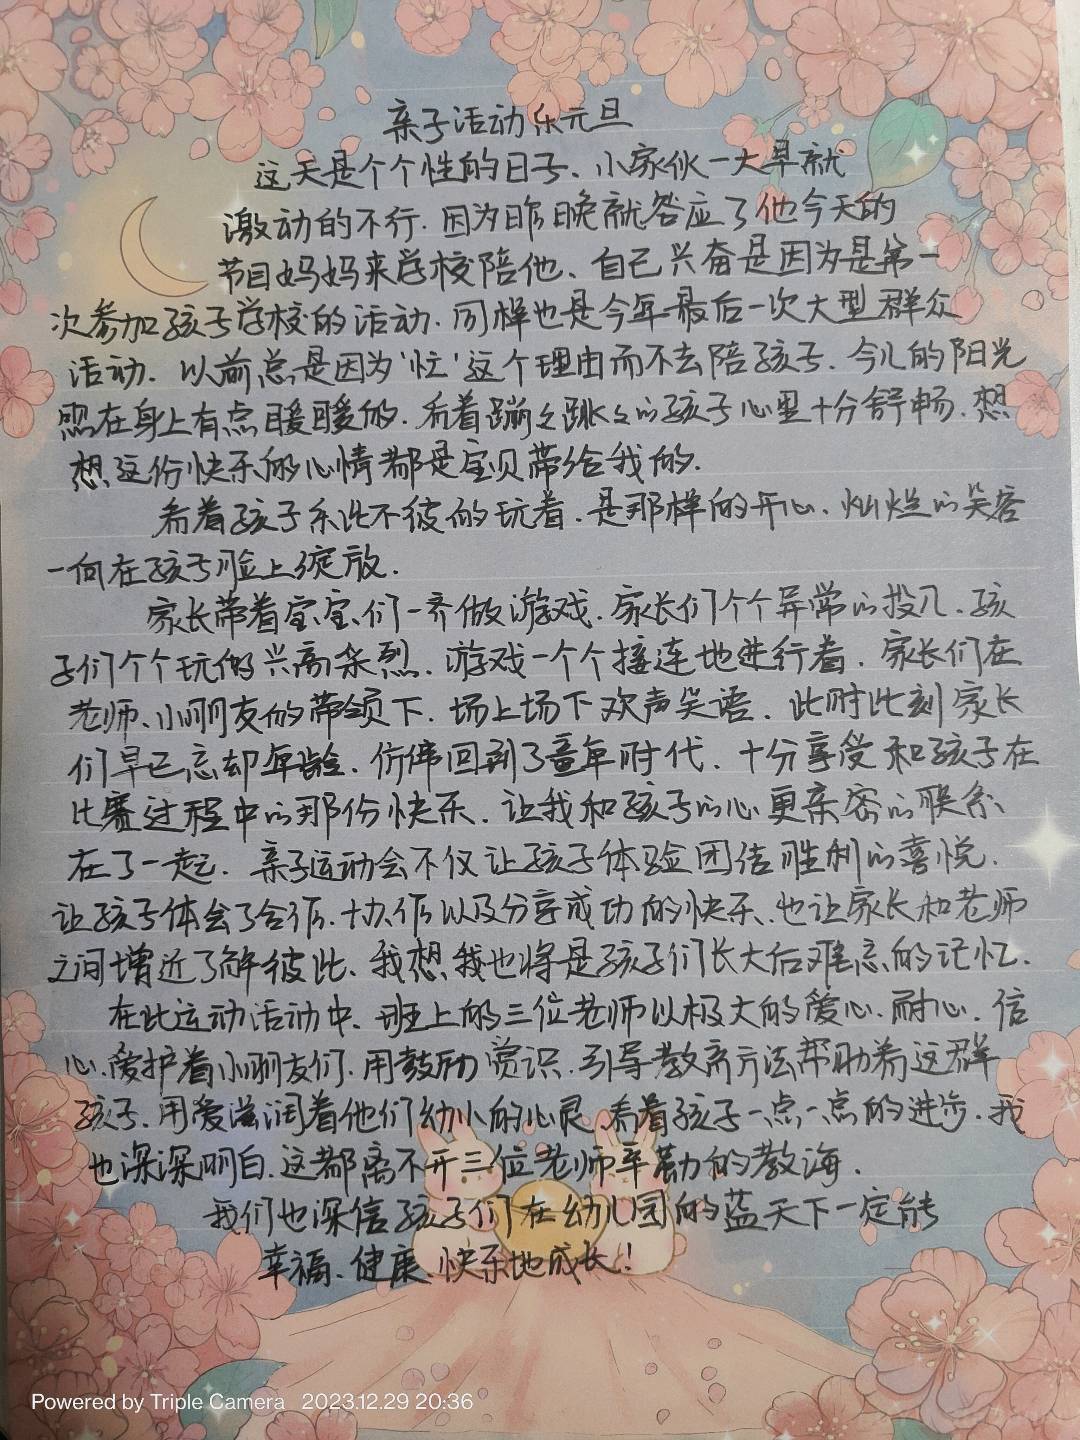 亲子活动乐元旦
这天是个个性的日子、小家伙一大早就
激动的不行.因为昨晚就答应了他今天的
节目妈妈来学校陪他、自己兴奋是因为是第一
次参加孩子学校的活动.同样也是今年最后一次大型群众
活动.以前总是因为'忙'这个理由而不去陪孩子.今儿的阳光
照在身上有点暖暖的.看着蹦々跳々的孩子心里十分舒畅.想
想这份快乐的心情都是宝贝带给我的.
看着孩子乐此不彼的玩着.是那样的开心、灿烂的笑容
一向在孩子脸上绽放.
家长带着宝宝们一齐做游戏.家长们个个异常的投入.孩
子们个个玩的兴高采烈.游戏一个个接连地进行着.家长们在
老师、小朋友的带领下.场上场下欢声笑语.此时此刻家长
们早已忘却年龄.仿佛回到了童年时代.十分享受和孩子在
比赛过程中的那份快乐.让我和孩子的心更亲密的联系
在了一起.亲子运动会不仅让孩子体验团结胜利的喜悦.
让孩子体会了合作.协作以及分享成功的快乐、也让家长和老师
之间增近了解彼此、我想我也将是孩子们长大后难忘的记忆.
在此运动活动中、班上的三位老师以极大的爱心.耐心.信
心.爱护着小朋友们.用鼓励赏识.引导教育方法帮助着这群
孩子.用爱滋润着他们幼小的心灵.看着孩子一点一点的进步.我
也深深明白.这都离不开三位老师辛勤的教海.
我们也深信孩子们在幼儿园的蓝天下一定能
幸福、健康、快乐地成长!
Powered by Triple Camera 2023.12.29 20:36